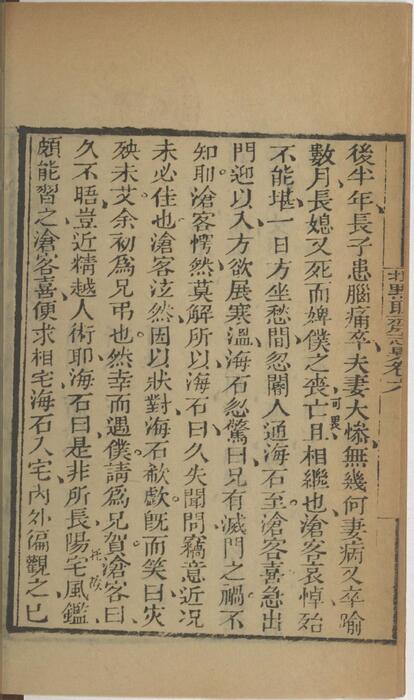 後半年長子患腦痛卒夫妻大慘無幾何妻病又卒踰
數月長媳又死而婢僕之喪亡且相繼也滄客哀悼殆
可畏
不能堪一日方坐愁間忽閽人通海石至滄客喜急出
門迎以入方欲展寒溫海石忽驚曰兄有滅門之禍不
知耶滄客愕然莫解所以海石曰久失聞問竊意近況
未必佳也滄客泫然因以狀對海石欷歔旣而笑曰灾
殃未艾余初爲兄弔也然幸而遇僕請爲兄賀滄客曰
久不晤豈近精越人術耶海石曰是非所長陽宅風鑑
托故
頗能習之滄客喜便求相宅海石入宅內外徧觀之已